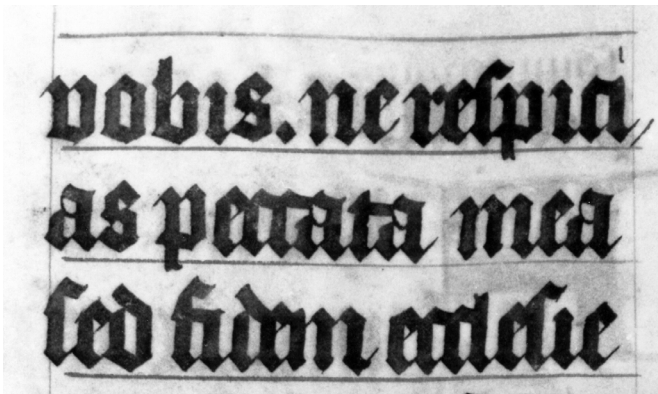 vobis. ne reſpici/
as peccata mea
ſed fidem eccleſie